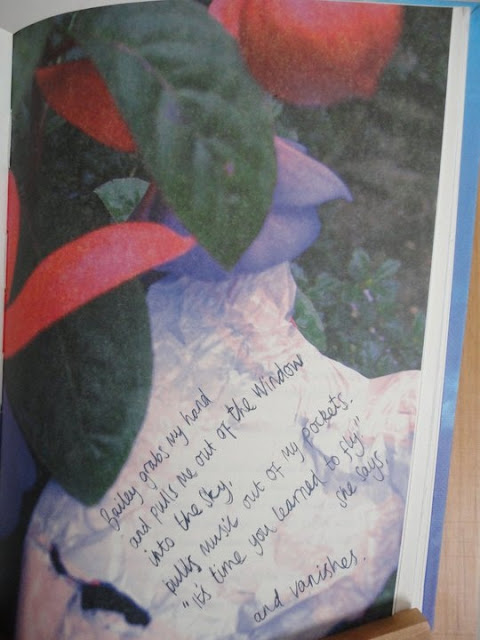 Bailey grabs my hand
and pulls me out of the window
into the sky,
pulls music out of my pockets.
"It's time you learned to fly"
she says,
and vanishes.